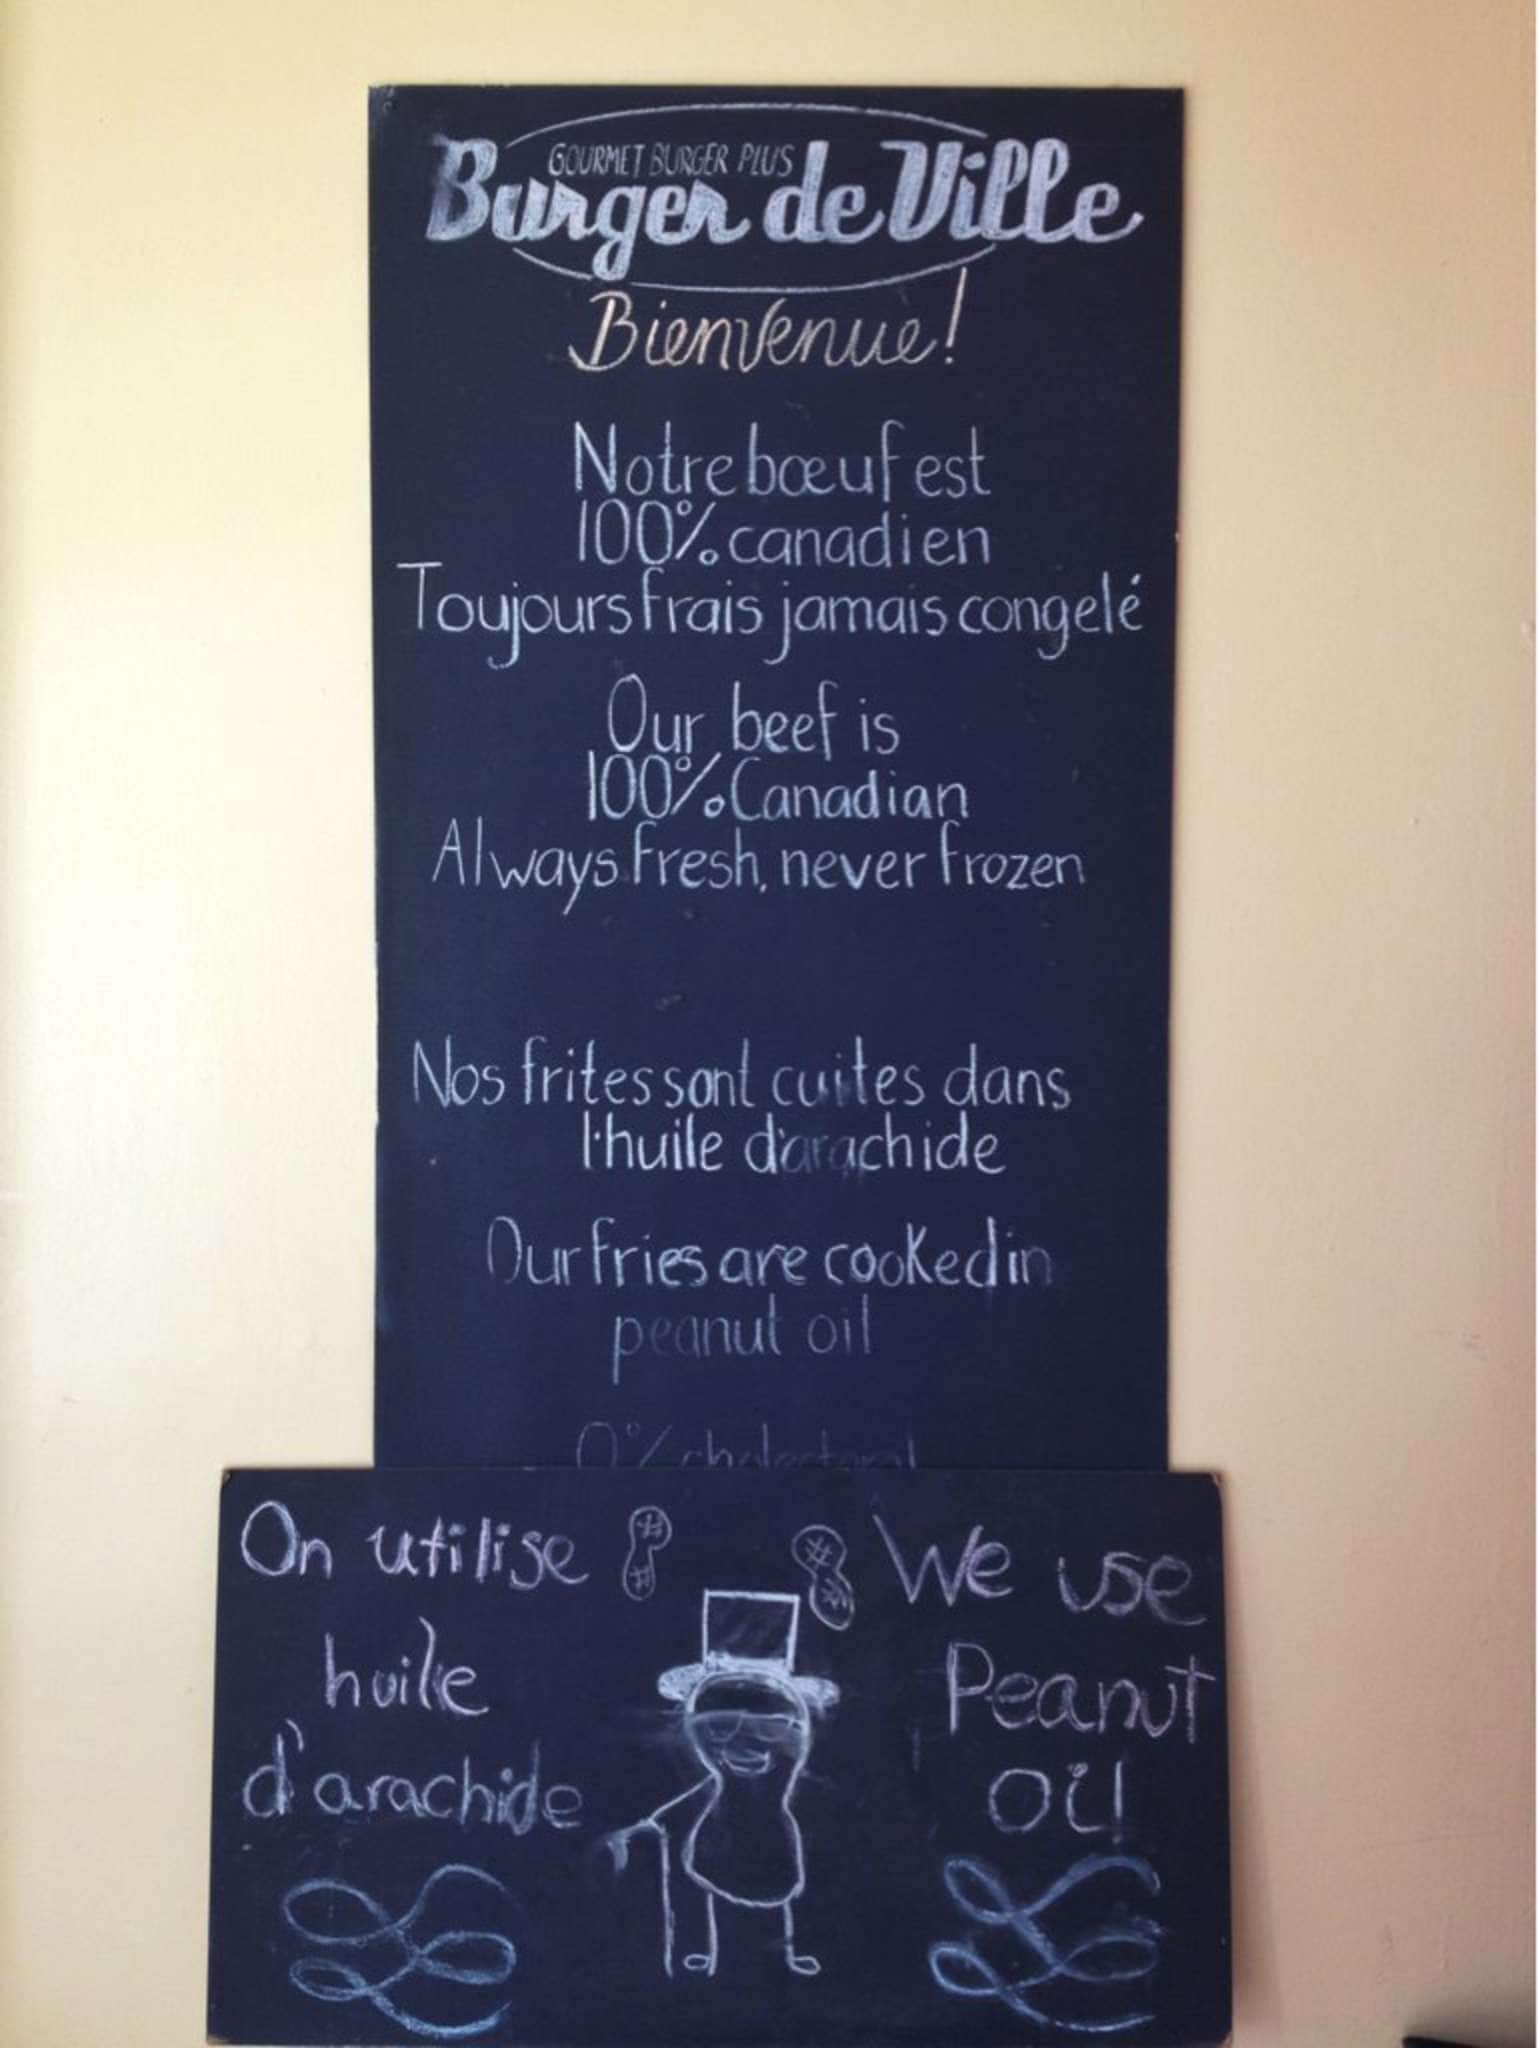 GOURMET BURGER PLUS
Burger de Ville
Bienvenue!
Notre bœuf est
100% canadien
Toujours frais jamais congelé
Our beef is
100% Canadian
Always fresh, never frozen
Nos frites sont cuites dans
l'huile d'arachide
Our fries are cooked in
peanut oil
0% cholesterol
On utilise
huile
d'arachide
We use
Peanut
oil